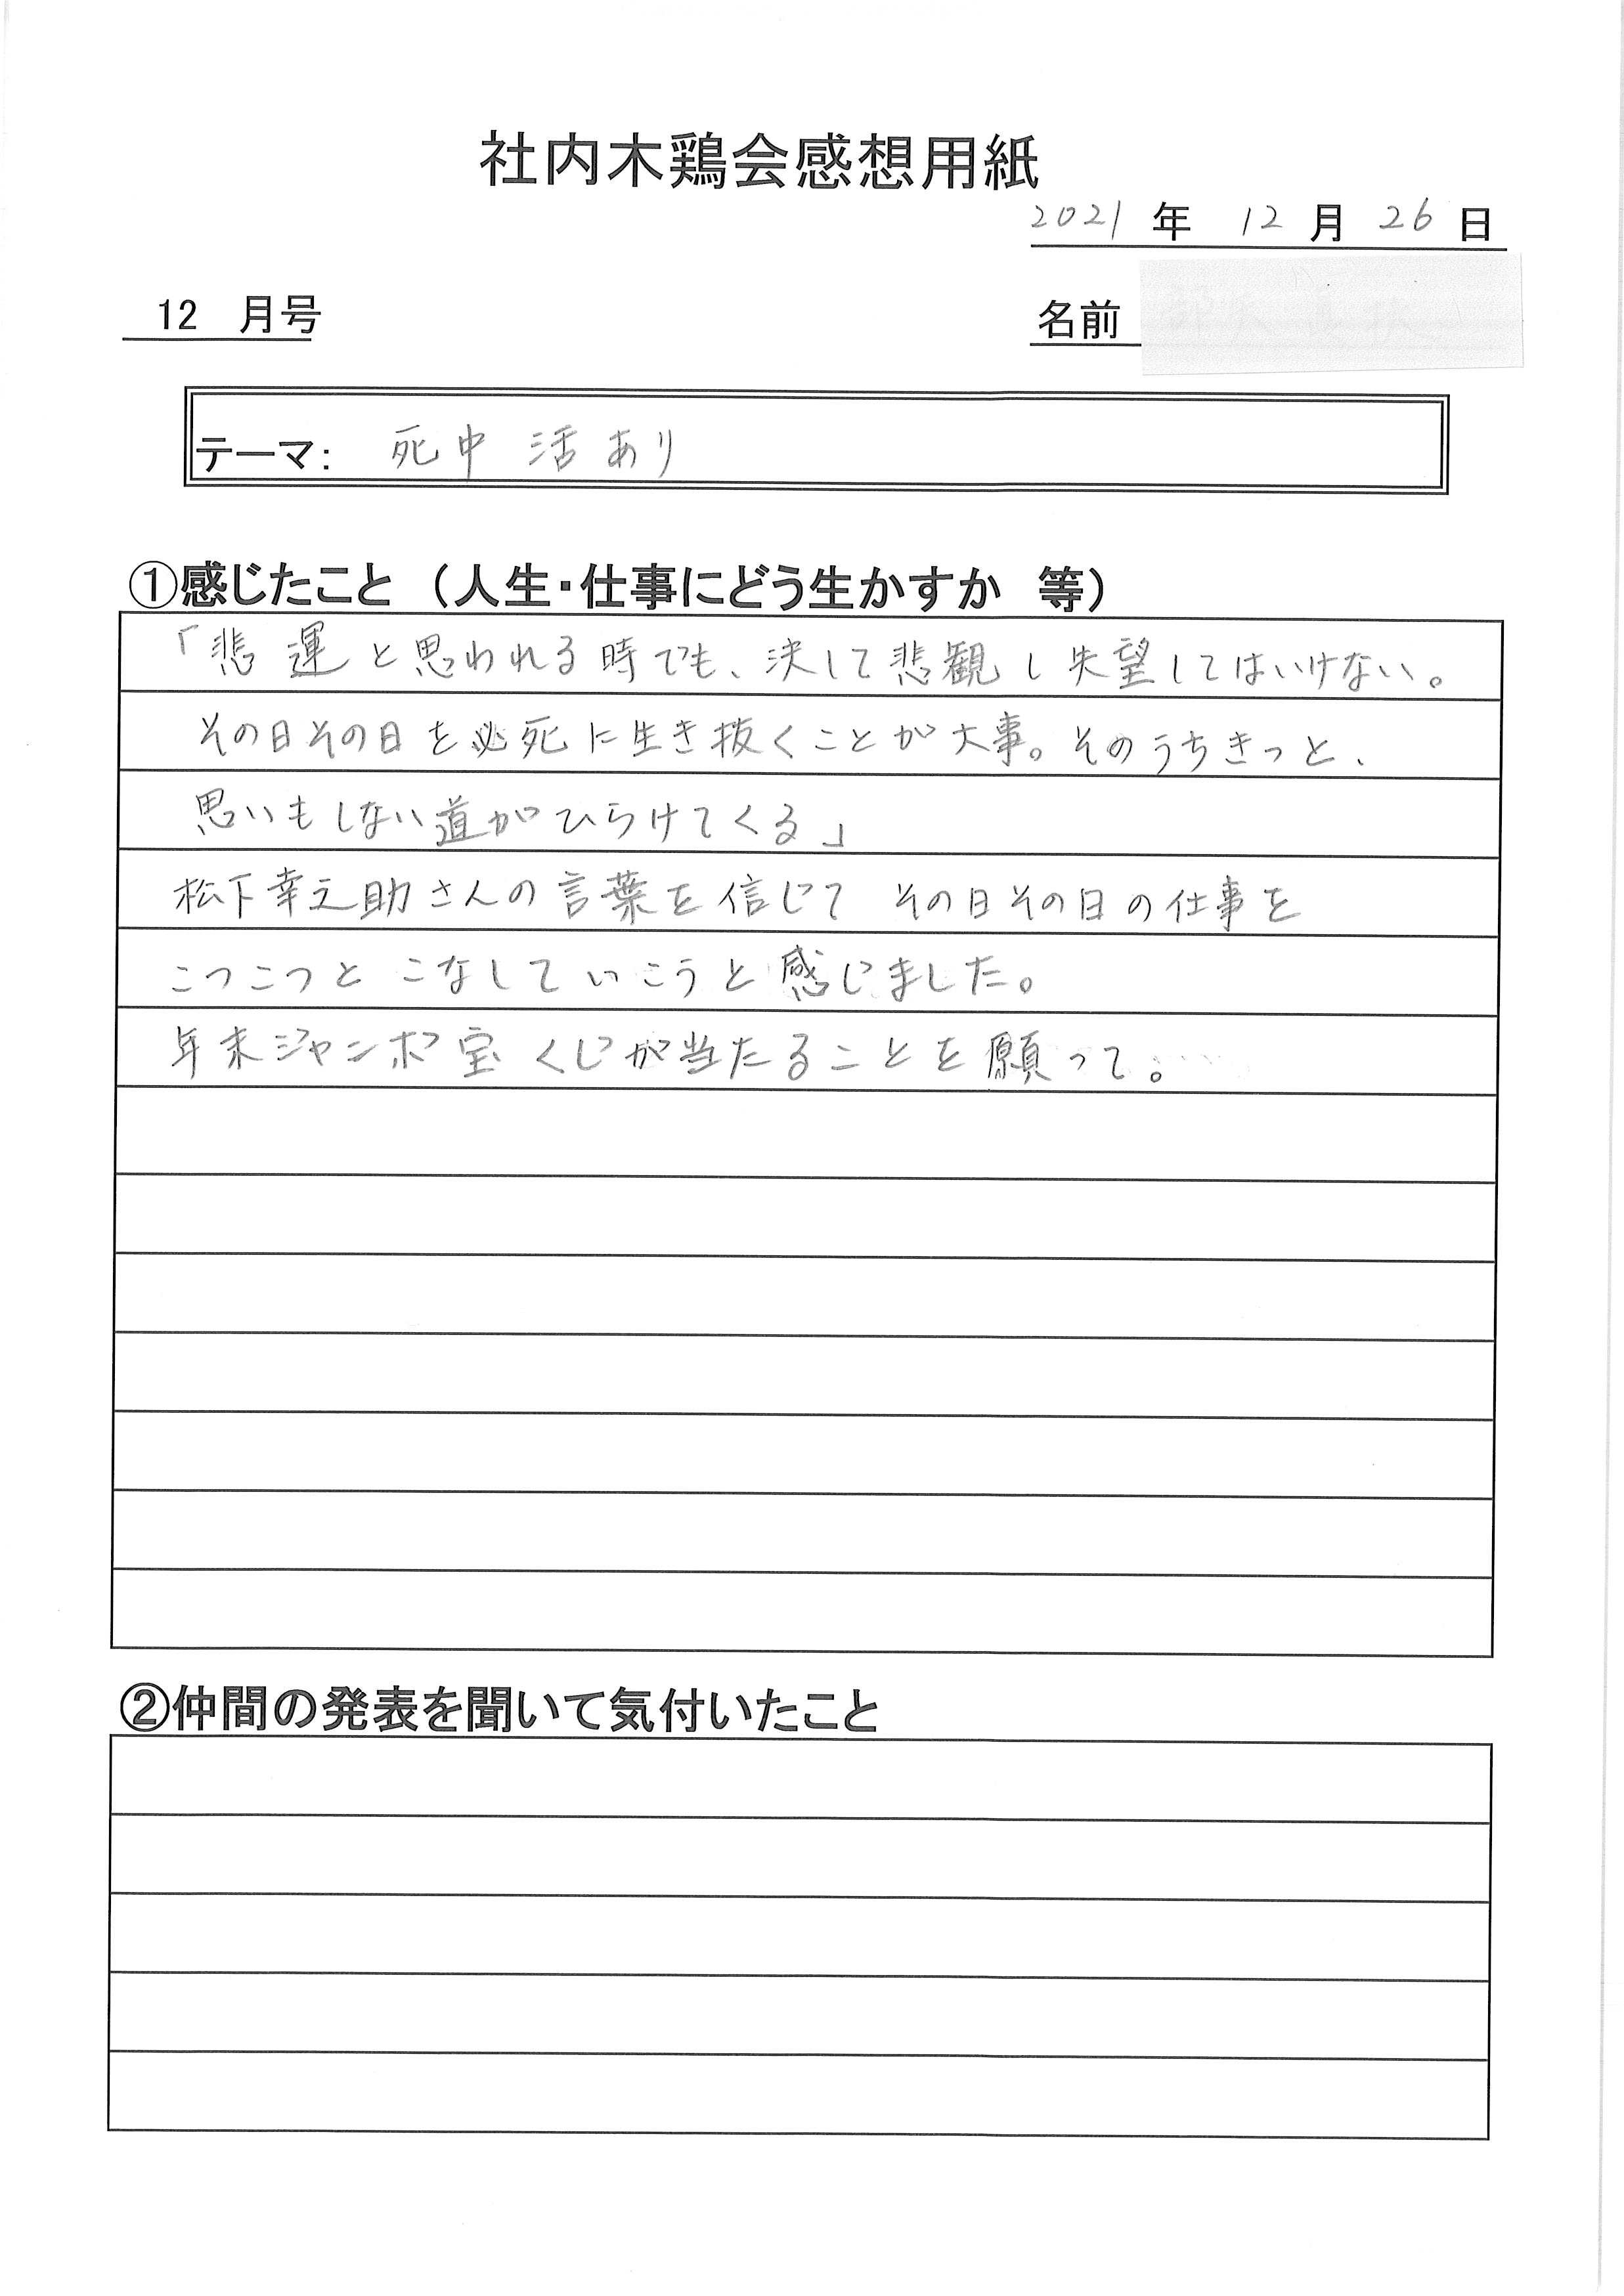 社内木鶏会感想用紙
2021 年 12 月 26 日
12 月号
名前
テーマ: 死中活あり
①感じたこと (人生・仕事にどう生かすか 等)
「悲運と思われる時でも、決して悲観し失望してはいけない。
その日その日を必死に生き抜くことが大事。そのうちきっと、
思いもしない道がひらけてくる」
松下幸之助さんの言葉を信じて その日その日の仕事を
こつこつと こなしていこうと感じました。
年末ジャンボ宝くじが当たることを願って。
②仲間の発表を聞いて気付いたこと